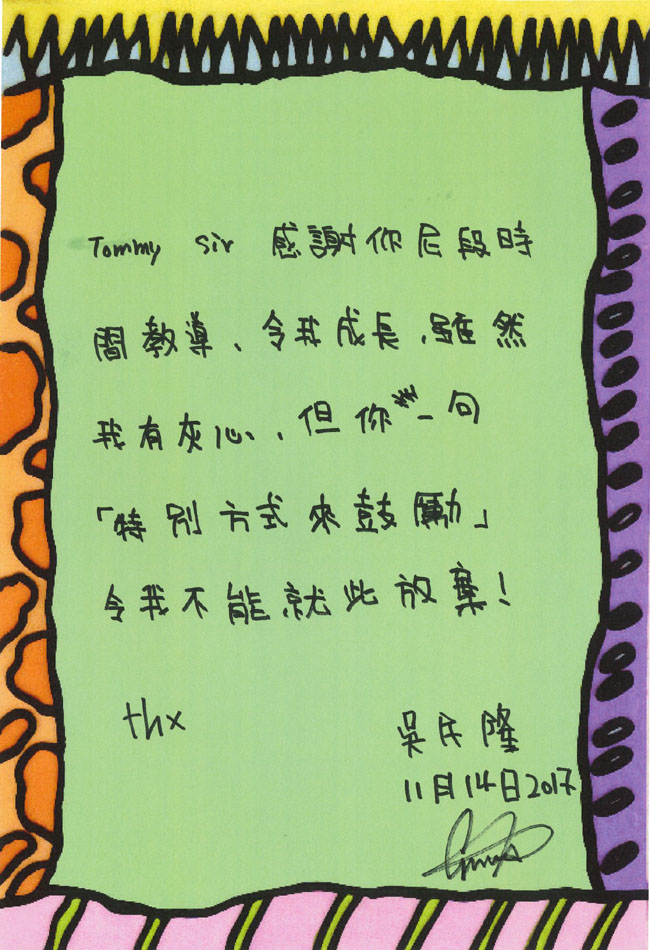 Tommy Sir 感謝你尼段時
間教導、令我成長,雖然
我有灰心、但你一句
「特別方式來鼓勵」
令我不能就此放棄!
thx
吳民隆
11月14日2017